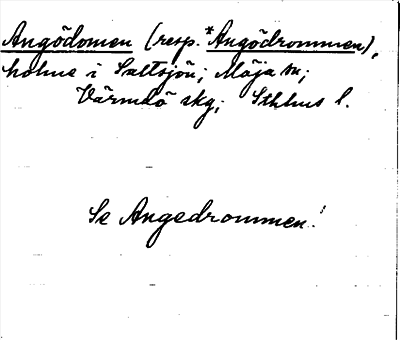 Angödomen (resp. *Angödrommen),
holme i Saltsjön; Möja sn;
Värmdö skg; Sthlms l.
Se Angedrommen!